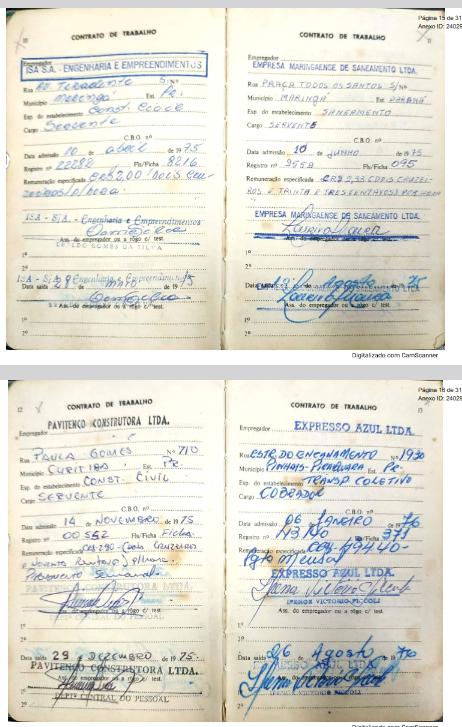 Página 15 de 31
Anexo ID: 24028
10
CONTRATO DE TRABALHO
Empregador
ISA S.A. - ENGENHARIA E EMPREENDIMENTOS
Rua Av. Tiradentes S/Nº
Município Maringá Est. Pr.
Esp. do estabelecimento Const. Civil
Cargo Servente
C.B.O. nº
Data admissão 10 de abril de 1975
Registro nº 22288 Fls/Ficha 8216
Remuneração especificada Cr$ 2,00 (dois cru-
zeiros) p/hora.
ISA - S/A - Engenharia e Empreendimentos
Ass. do empregador ou a rôgo c/ test.
GOMES DA SILVA
1º
2º
ISA - S/A - Engenharia e Empreendimentos
Data saída 28 de maio de 1975
Ass. do empregador ou a rôgo c/ test.
1º
2º
11
CONTRATO DE TRABALHO
Empregador
EMPRESA MARINGAENSE DE SANEAMENTO LTDA.
Rua PRAÇA TODOS OS SANTOS S/Nº
Município MARINGÁ Est. PARANÁ
Esp. do estabelecimento SANEAMENTO
Cargo SERVENTE
C.B.O. nº
Data admissão 10 de JUNHO de 1975
Registro nº 9558 Fls/Ficha 095
Remuneração especificada CR$ 2,33 (DOIS CRUZEI-
ROS E TRINTA E TRES CENTAVOS) POR HORA
EMPRESA MARINGAENSE DE SANEAMENTO LTDA.
Ass. do empregador ou a rôgo c/ test.
1º
2º
Data saída 12 de Agosto de 1975
Ass. do empregador ou a rôgo c/ test.
1º
2º
Digitalizado com CamScanner
Página 16 de 31
Anexo ID: 24028
12
CONTRATO DE TRABALHO
Empregador
PAVITENCO CONSTRUTORA LTDA.
Rua PAULA GOMES Nº 710
Município CURITIBA Est. PR.
Esp. do estabelecimento CONST. CIVIL
Cargo SERVENTE
C.B.O. nº
Data admissão 14 de NOVEMBRO de 1975
Registro nº 00552 Fls/Ficha FICHA
Remuneração especificada CR$-2,90-(Dois CRUZEIROS
E NOVENTA CENTAVOS) P/HORA.
PAGAMENTO Semanal
PAVITENCO CONSTRUTORA LTDA.
Ass. do empregador ou a rôgo c/ test.
DEPTº CENTRAL DO PESSOAL
1º
2º
Data saída 29 de DEZEMBRO de 1975
PAVITENCO CONSTRUTORA LTDA.
Ass. do empregador ou a rôgo c/ test.
DEPTº CENTRAL DO PESSOAL
2º
13
CONTRATO DE TRABALHO
Empregador EXPRESSO AZUL LTDA.
Rua ESTR. DO ENCANAMENTO Nº 1930
Município PINHAIS-PIRAQUARA Est. Pr.
Esp. do estabelecimento TRANSP COLETIVO
Cargo COBRADOR
C.B.O. nº
Data admissão 06 de JANEIRO de 1976
Registro nº Fls/Ficha 371
Remuneração especificada
Pgto Mensal
EXPRESSO AZUL LTDA.
Ass. do empregador ou a rôgo c/ test.
IPENOR VICTORIO PICCOLI
1º
2º
Data saída 26 de Agosto de 19
EXPRESSO AZUL LTDA.
Ass. do empregador ou a rôgo c/ test.
IPENOR VICTORIO PICCOLI
1º
2º